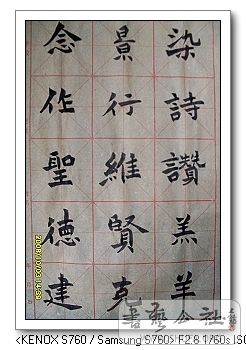 染詩讚羔羊
景行維賢克
念作聖德建
<KENOX S760 / Samsung S760> F2.8 1/60s ISO